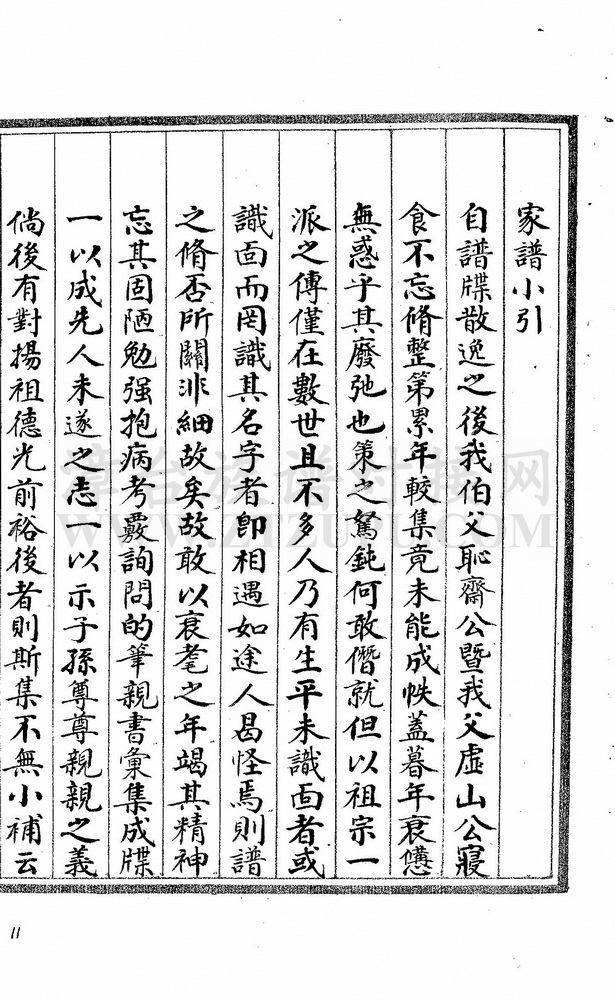 家譜小引
自譜牒散逸之後我伯父恥齋公暨我父虛山公寢
食不忘脩整第累年較集竟未能成帙蓋暮年衰憊
無惑乎其廢弛也策之駑鈍何敢僭就但以祖宗一
派之傳僅在數世且不多人乃有生平未識面者或
識面而罔識其名字者卽相遇如途人曷怪焉則譜
之脩否所關非細故矣故敢以衰耄之年竭其精神
忘其固陋勉强抱病考覈詢問的筆親書彙集成牒
一以成先人未遂之志一以示子孫尊尊親親之義
倘後有對揚祖德光前裕後者則斯集不無小補云
11
WWW.ZTZUPU.COM